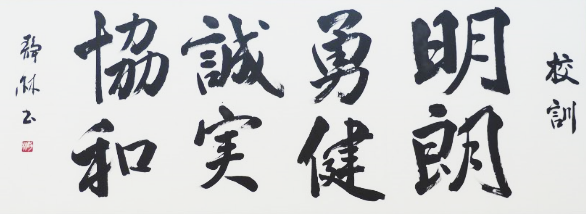 校訓
明朗
勇健
誠実
協和